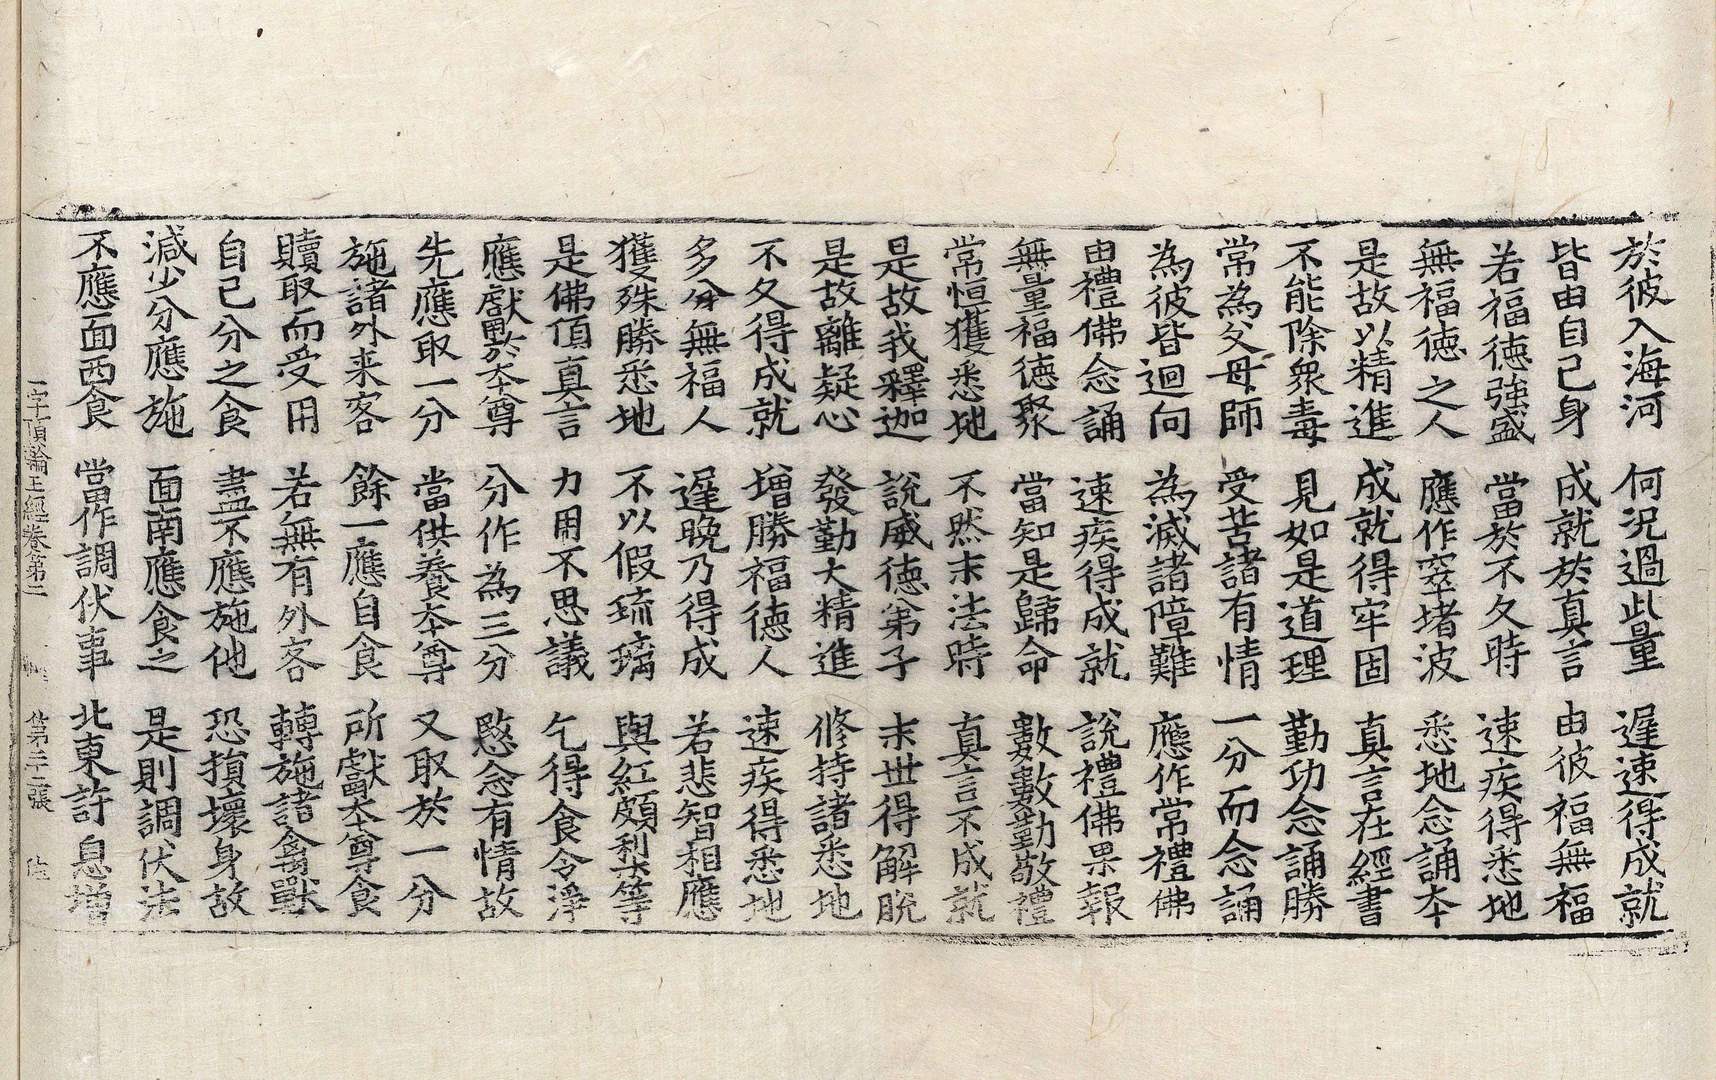 於彼入海河 何況過此量 遲速得成就
皆由自己身 成就於真言 由彼福無福
若福德強盛 當於不久時 速疾得悉地
無福德之人 應作窣堵波 悉地念誦本
是故以精進 成就得牢固 真言在經書
不能除衆毒 見如是道理 勤功念誦勝
常為父母師 受苦諸有情 一分而念誦
為彼皆迴向 為滅諸障難 應作常禮佛
由禮佛念誦 速疾得成就 說禮佛果報
無量福德聚 當知是歸命 數數勤敬禮
常恒獲悉地 不然末法時 真言不成就
是故我釋迦 說威德弟子 末世得解脫
是故離疑心 發勤大精進 修持諸悉地
不久得成就 增勝福德人 速疾得悉地
多分無福人 遲晚乃得成 若悲智相應
獲殊勝悉地 不以假琉璃 與紅頗梨等
是佛頂真言 力用不思議 乞得食令淨
應獻於本尊 分作為三分 愍念有情故
先應取一分 當供養本尊 又取於一分
施諸外来客 餘一應自食 所獻本尊食
贖取而受用 若無有外客 轉施諸禽獸
自己分之食 盡不應施他 恐損壞身故
減少分應施 面南應食之 是則調伏法
不應面西食 當作調伏事 北東許息增
一字頂輪王經卷第二 第三二張